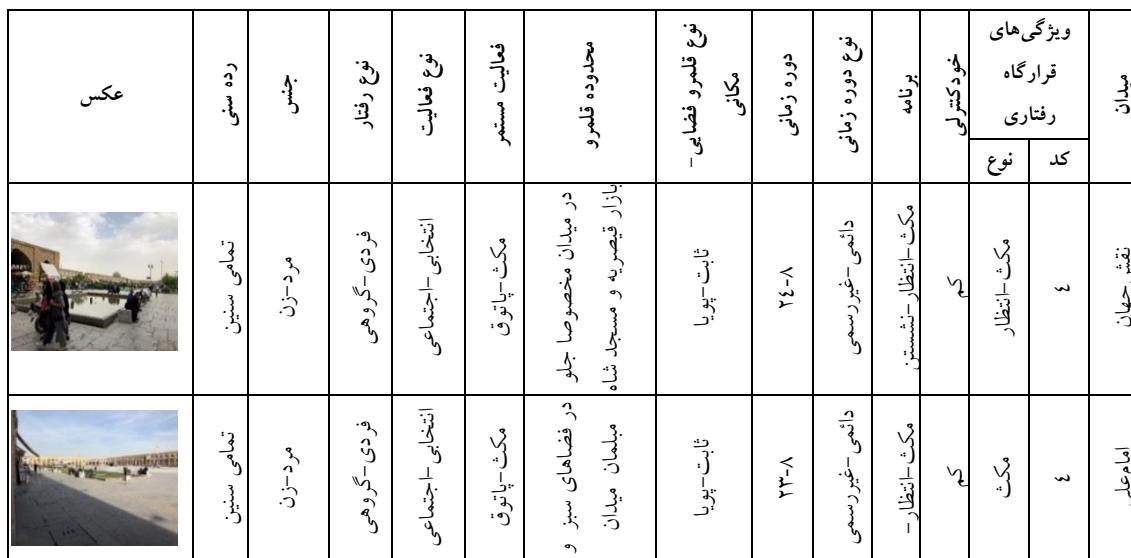 میدان
ویژگی‌های
قرارگاه
رفتاری
کد
نوع
خودکنترلی
برنامه
نوع دوره زمانی
دوره زمانی
نوع قلمرو فضایی-
مکانی
محدوده قلمرو
فعالیت مستمر
نوع فعالیت
نوع رفتار
جنس
رده سنی
عکس
نقش جهان
٤
مکث-انتظار
کم
مکث-انتظار-نشستن
دائمی-غیررسمی
٨-٢٤
ثابت-پویا
در میدان مخصوصا جلو
بازار قیصریه و مسجد شاه
مکث-پاتوق
انتخابی-اجتماعی
فردی-گروهی
مرد-زن
تمامی سنین
امام‌علی
٤
مکث
کم
مکث-انتظار-
دائمی-غیررسمی
٨-٢٣
ثابت-پویا
در فضاهای سبز و
مبلمان میدان
مکث-پاتوق
انتخابی-اجتماعی
فردی-گروهی
مرد-زن
تمامی سنین